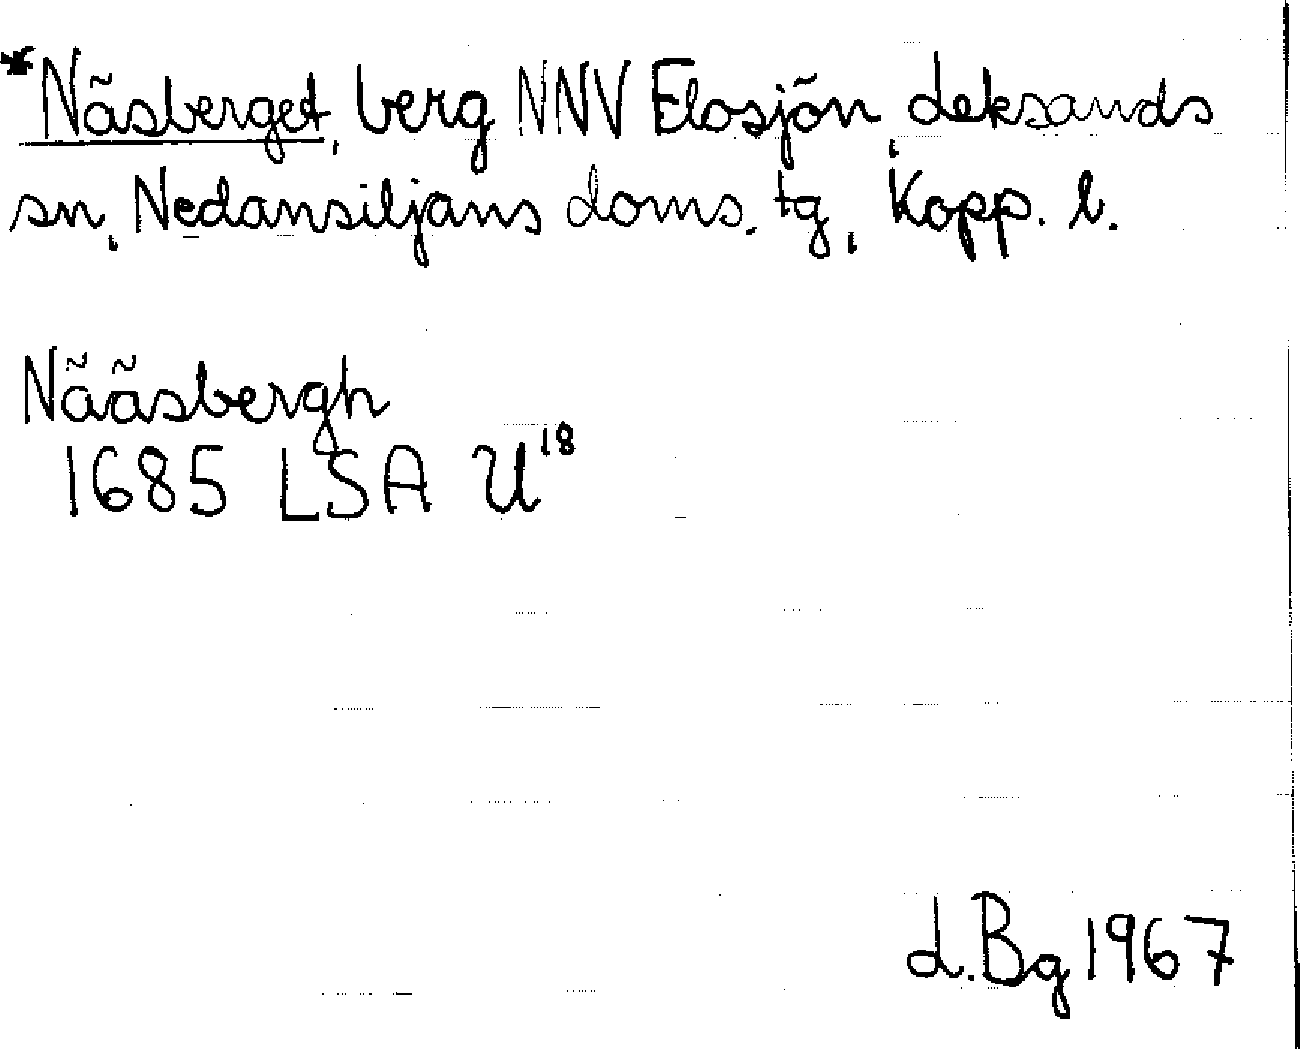 *Näsberget, berg NNV Elosjön, Leksands
sn, Nedansiljans doms. tg, Kopp. l.
Nääsbergh
1685 LSA U18
L.Bg 1967